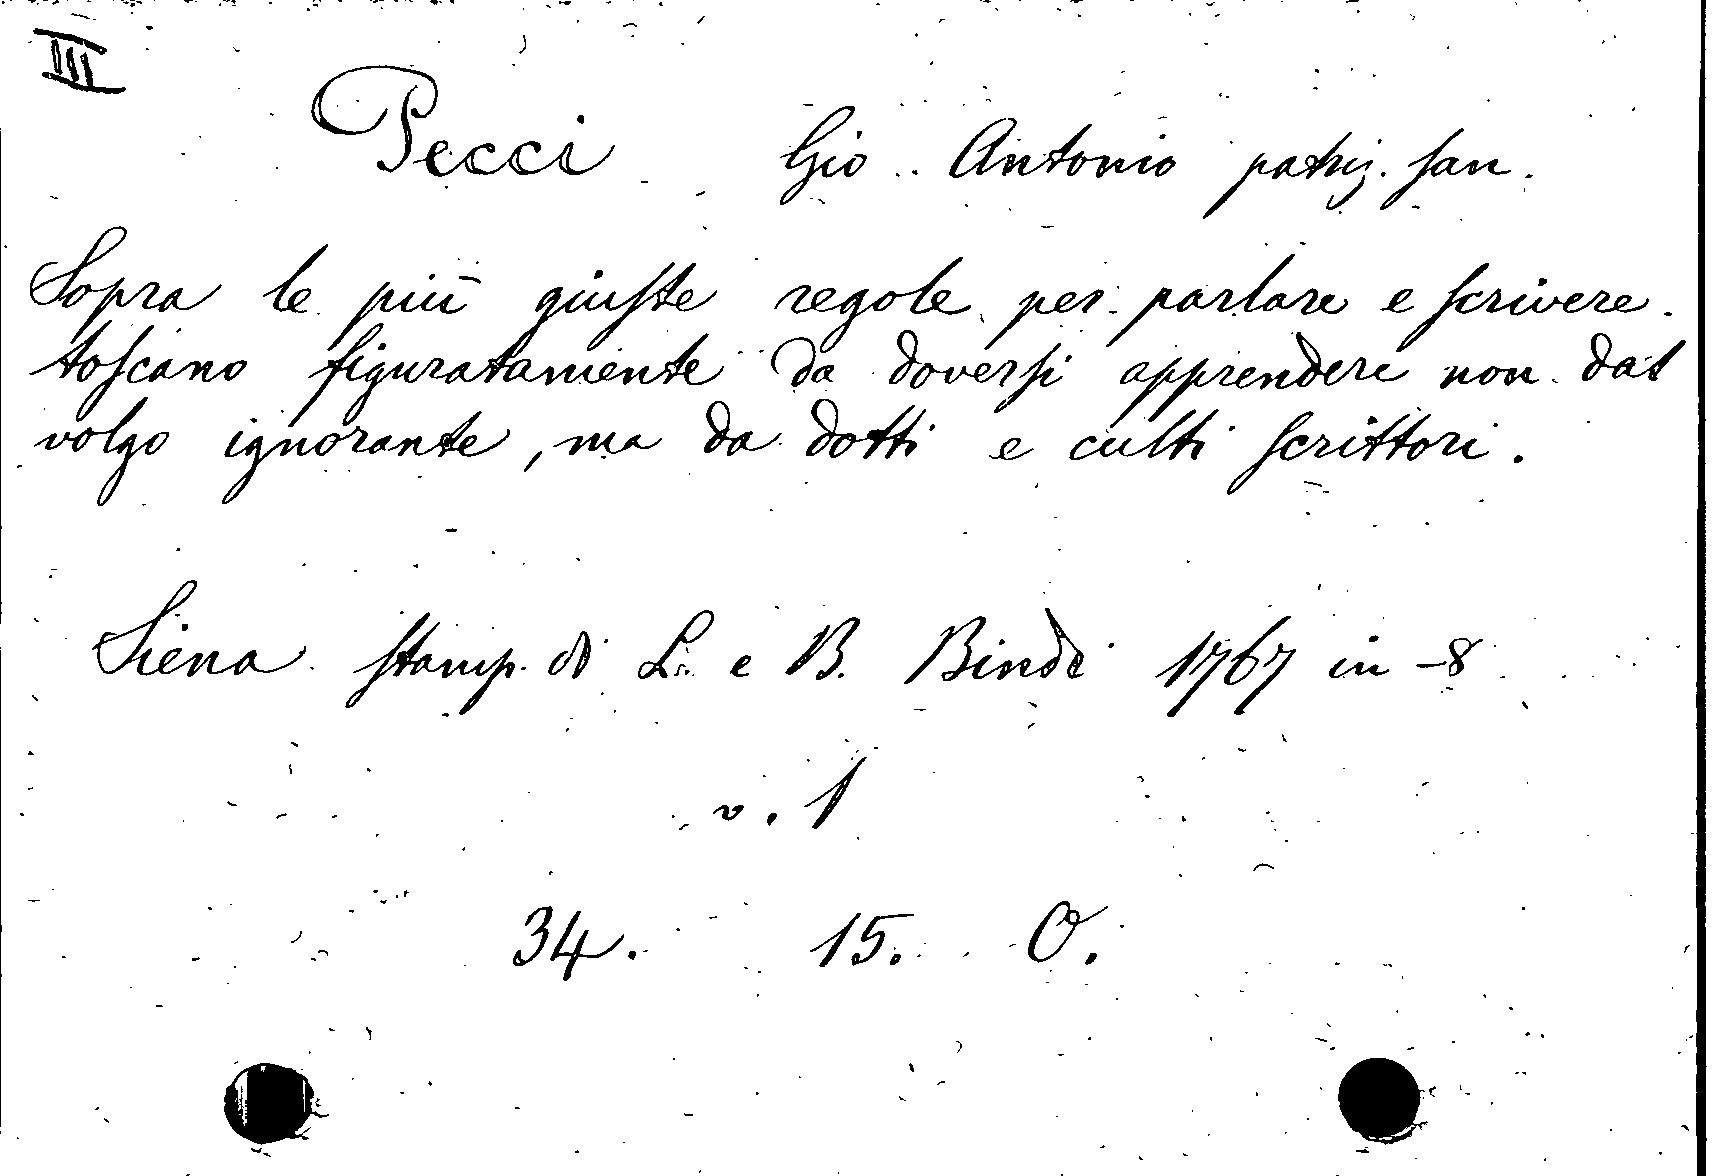 III
Pecci Gio. Antonio patriz. san.
Sopra le più giuste regole per parlare e scrivere
toscano figuratamente da doversi apprendere non dal
volgo ignorante, ma da dotti e culti scrittori.
Siena stamp. di L. e B. Bindi 1767 in-8
v. 1
34. 15. O.